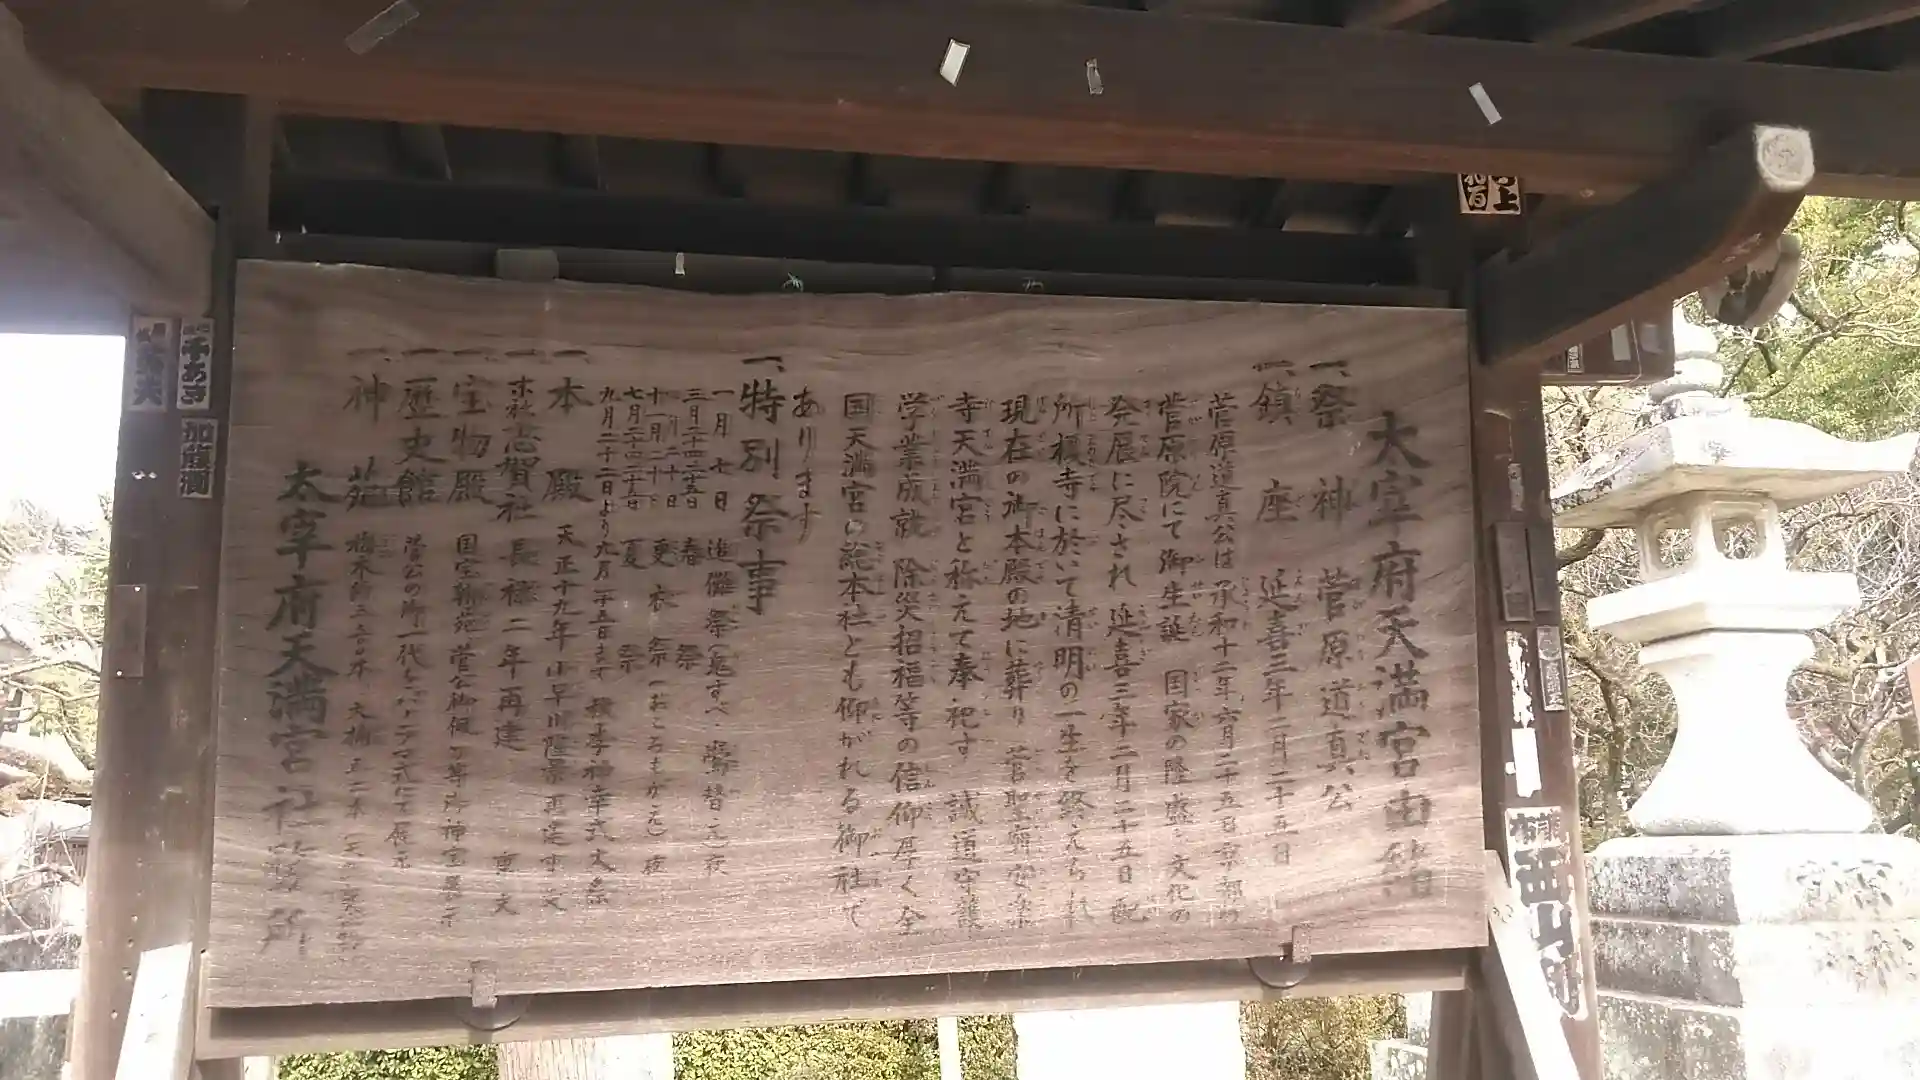 太宰府天満宮由緒
一、祭神 菅原道真公
一、鎮座 延喜三年二月二十五日
菅原道真公は承和十二年六月二十五日京都の
菅原院にて御生誕 国家の隆盛と文化の
発展に尽され 延喜三年二月二十五日配
所榎寺に於いて清明の一生を終えられ
現在の御本殿の地に葬り 菅聖廟安楽
寺天満宮と称えて奉祀す 誠道守護
学業成就 除災招福等の信仰厚く全
国天満宮の総本社とも仰がれる御社で
あります
一、特別祭事
一月七日 進儺祭(鬼すべ・鷽替え)夜
三月二十四二十五日 春祭
十一月二十日 更衣祭(おころもがえ)夜
七月二十四二十五日 夏祭
九月二十二日より九月二十五日まで 神幸式大祭
一、本殿 天正十九年 小早川隆景再建 重文
一、末社志賀社 長禄二年再建 重文
一、宝物殿 国宝翰苑 菅公御佩刀等御神宝展示
一、歴史館 菅公の御一代をパノラマ式にて展示
一、神苑
太宰府天満宮社務所